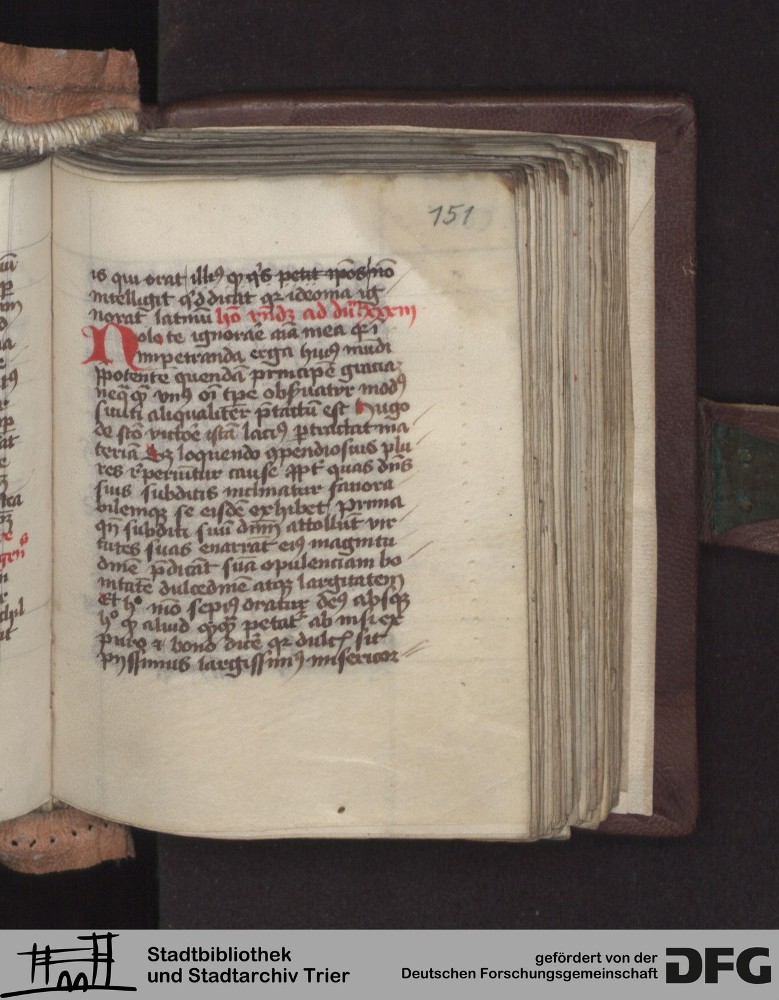 151
is qui orat illiꝰ ꝙ
intelligit qd dicat qꝛ ideoma ig
norat latinū
Nolo te ignorare aīa mea
impetranda erga huiꝰ mūdi
potentē quendā principē gracia
vniꝰ oī tpē obſuatur modꝰ
ſicuti aliqualiter ptactū est hugo
de ſcō victore iſtā laciꝰ ptractat ma
teriā Sꝫ loquendo ꝯpendioſius plu
res reperiūtur cauſe ꝓpt quas dn̄s
ſuis ſubditis inclinatur fauora
bilemqꝫ ſe eiſdē exhibet prima
qn̄ ſubditi ſuū dn̄m attollūt vir
tutes ſuas enarrāt eiꝰ magnitu
dinē p̄dicāt ſuā opulenciam bo
nitatē dulcedinē atqꝫ largitatem
Et hͦ mō ſepiꝰ oratur deꝰ abſqꝫ
hͦ ꝙ aliud petat ab niſi ex
puro ⁊ bono dicē qꝛ dulcꝭ ſit
pijſſimus largiſſimꝰ miſericor
Stadtbibliothek
und Stadtarchiv Trier
gefördert von der
Deutschen Forschungsgemeinschaft
DFG